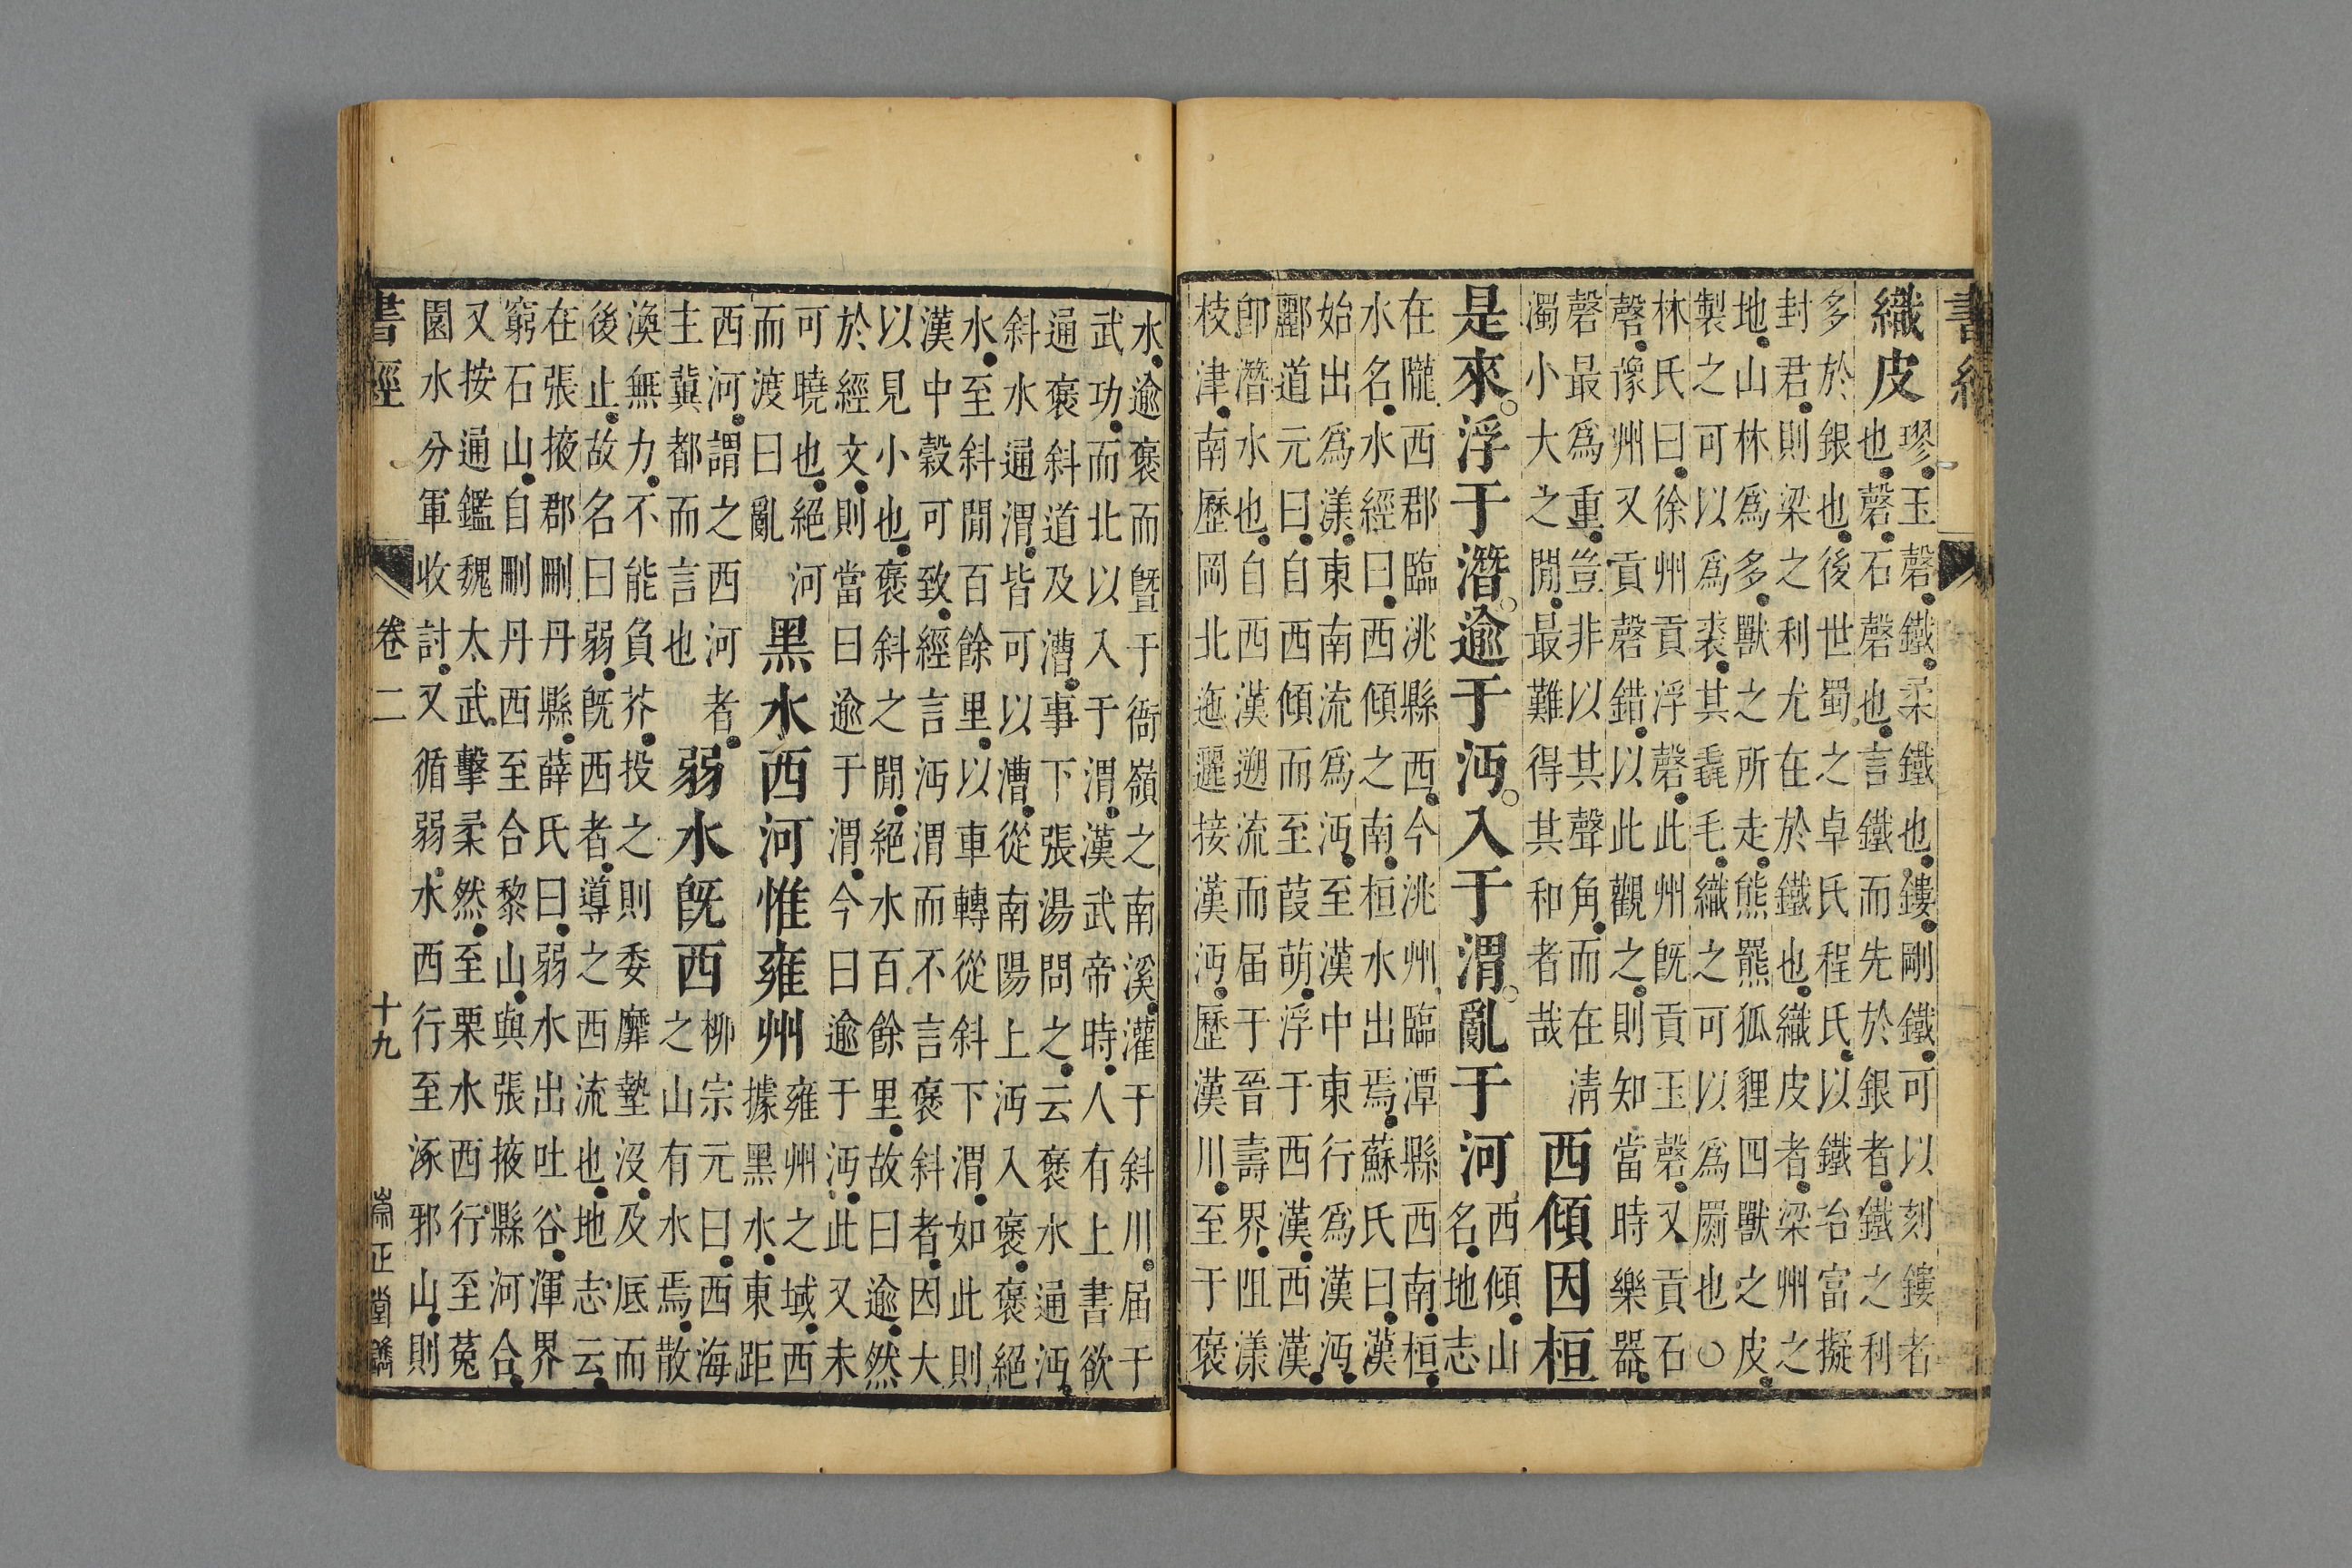 書經
織皮
璆玉磬鐵柔鐵也鏤剛鐵可以刻鏤者
也磬石磬也言鐵而先於銀者鐵之利
多於銀也後世蜀之卓氏程氏以鐵冶富擬
封君則梁之利尤在於鐵也織皮者梁州之
地山林爲多獸之所走熊羆狐貍四獸之皮
製之可以爲裘其毳毛織之可以爲罽也○
林氏曰徐州貢浮磬此州旣貢玉磬又貢石
磬豫州又貢磬錯以此觀之則知當時樂器
磬最爲重豈非以其聲角而在淸
濁小大之閒最難得其和者哉
西傾因桓
是來浮于潛逾于沔入于渭亂于河
西傾山
名地志
在隴西郡臨洮縣西今洮州臨潭縣西南桓
水名水經曰西傾之南桓水出焉蘇氏曰漢
始出爲漾東南流爲沔至漢中東行爲漢沔
酈道元曰自西傾而至葭萌浮于西漢西漢
卽潛水也自西漢遡流而届于晉壽界阻漾
枝津南歷岡北迤邐接漢沔歷漢川至于褒
水逾褒而曁于衙嶺之南溪灌于斜川届于
武功而北以入于渭漢武帝時人有上書欲
通褒斜道及漕事下張湯問之云褒水通沔
斜水通渭皆可以漕從南陽上沔入褒褒絕
水至斜閒百餘里以車轉從斜下渭如此則
漢中穀可致經言沔渭而不言褒斜者因大
以見小也褒斜之閒絕水百餘里故曰逾然
於經文則當曰逾于渭今曰逾于沔此又未
可曉也絕河
而渡曰亂
黑水西河惟雍州
雍州之域西
據黑水東距
西河謂之西河者
主冀都而言也
弱水旣西
柳宗元曰西海
之山有水焉散
渙無力不能負芥投之則委靡墊沒及底而
後止故名曰弱旣西者導之西流也地志云
在張掖郡刪丹縣薛氏曰弱水出吐谷渾界
窮石山自刪丹西至合黎山與張掖縣河合
又按通鑑魏太武擊柔然至栗水西行至菟
園水分軍收討又循弱水西行至涿邪山則
書經 卷二 十九 崇正堂鐫